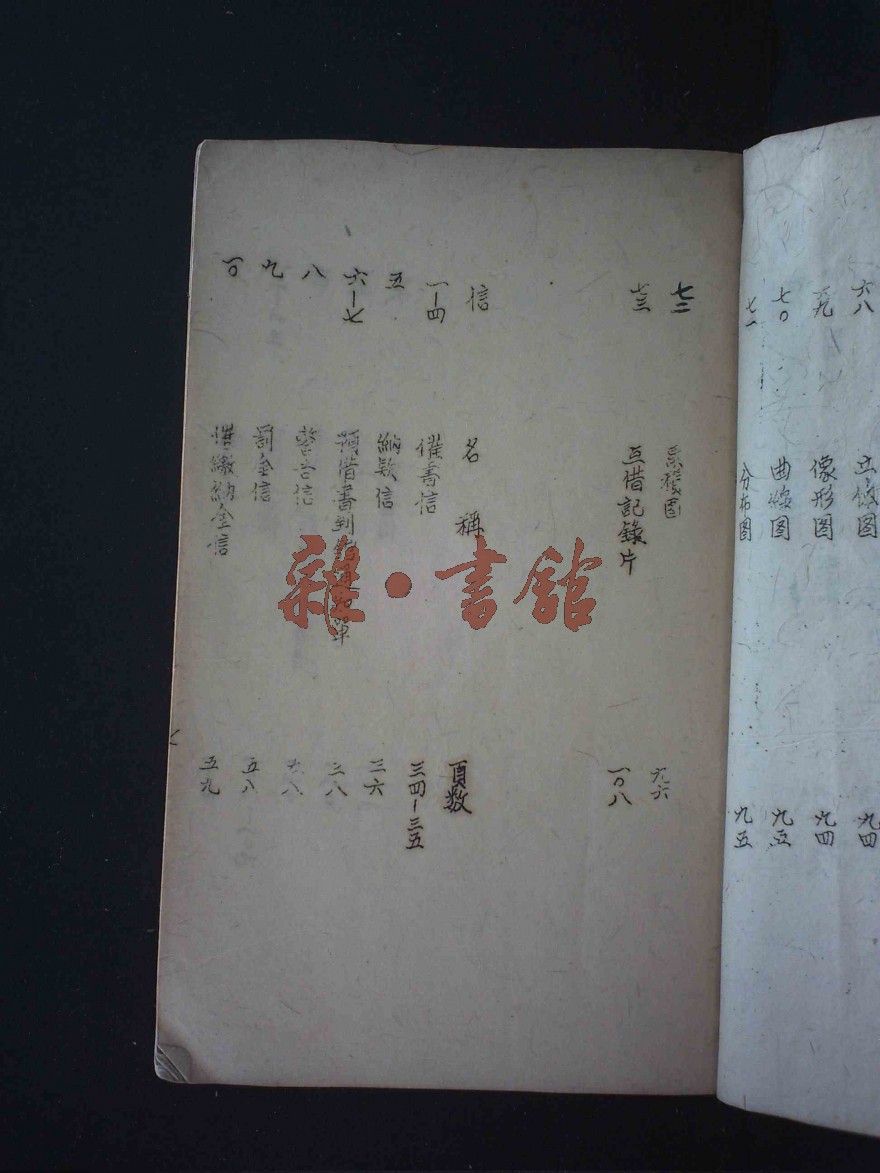 六八 九四
六九 像形图 九四
七〇 曲線图 九五
七一 分布图 九五
七二 九六
七三 互借記錄片 一〇八
信 名稱 頁数
一-四 催書信 三四-三五
五 納欵信 三六
六-七 預借書到館通知單 三八
八 警告信
九 罰金信 五八
一〇 催繳納金信 五九
雜·書館